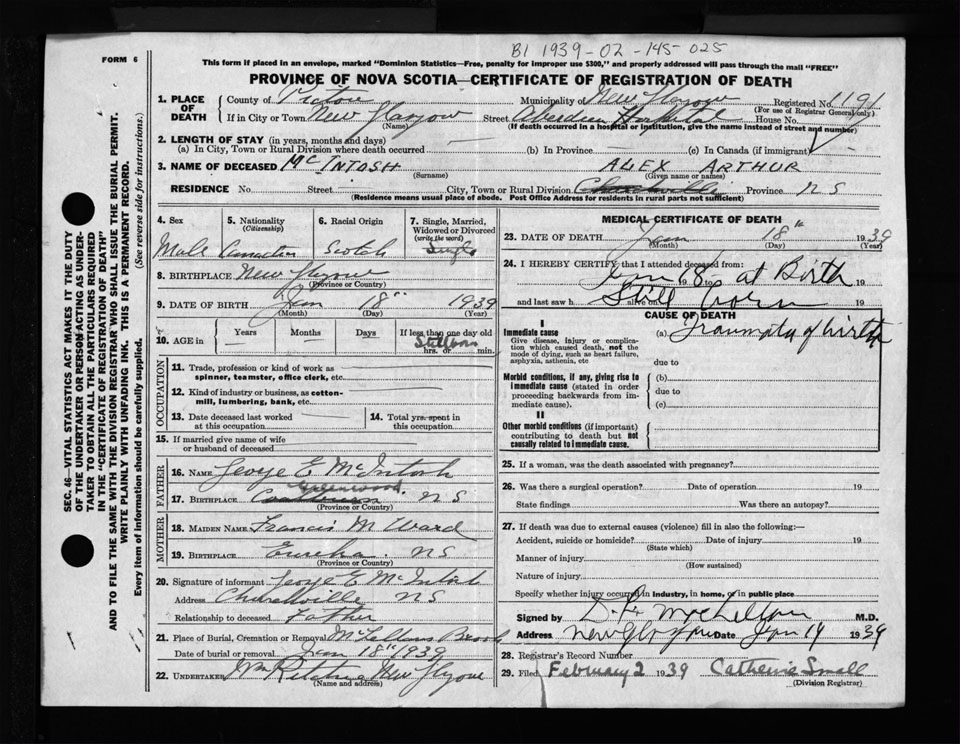 B1 1939-02-145-025
FORM 6
This form if placed in an envelope, marked "Dominion Statistics—Free, penalty for improper use $300," and properly addressed will pass through the mail "FREE"
PROVINCE OF NOVA SCOTIA—CERTIFICATE OF REGISTRATION OF DEATH
SEC. 46—VITAL STATISTICS ACT MAKES IT THE DUTY
OF THE UNDERTAKER OR PERSON ACTING AS UNDER-
TAKER TO OBTAIN ALL THE PARTICULARS REQUIRED
IN THE "CERTIFICATE OF REGISTRATION OF DEATH"
AND TO FILE THE SAME WITH THE DIVISION REGISTRAR WHO SHALL ISSUE THE BURIAL PERMIT.
WRITE PLAINLY WITH UNFADING INK. THIS IS A PERMANENT RECORD.
Every item of information should be carefully supplied. (See reverse side for instructions.)
1. PLACE OF DEATH
County of Pictou Municipality of New Glasgow Registered No. 1191
(For use of Registrar General only)
If in City or Town New Glasgow Street Aberdeen Hospital House No.
(Name) (If death occurred in a hospital or institution, give the name instead of street and number)
2. LENGTH OF STAY (in years, months and days)
(a) In City, Town or Rural Division where death occurred (b) In Province (c) In Canada (if immigrant)
3. NAME OF DECEASED McINTOSH ALEX ARTHUR
(Surname) (Given name or names)
RESIDENCE No. Street City, Town or Rural Division Churchville Province NS
(Residence means usual place of abode. Post Office Address for residents in rural parts not sufficient)
4. Sex 5. Nationality 6. Racial Origin 7. Single, Married,
(Citizenship) Widowed or Divorced
(write the word)
Male Canadian Scotch Single
8. BIRTHPLACE New Glasgow
(Province or Country)
9. DATE OF BIRTH Jan 18" 1939
(Month) (Day) (Year)
10. AGE in Years Months Days If less than one day old
Stillborn
hrs. or min.
OCCUPATION
11. Trade, profession or kind of work as
spinner, teamster, office clerk, etc.
12. Kind of industry or business, as cotton-
mill, lumbering, bank, etc.
13. Date deceased last worked at this occupation
14. Total yrs. spent in this occupation
15. If married give name of wife
or husband of deceased
FATHER
16. NAME George E McIntosh
Greenwood
17. BIRTHPLACE NS
(Province or Country)
MOTHER
18. MAIDEN NAME Francis M Ward
19. BIRTHPLACE Eureka. NS
(Province or Country)
20. Signature of informant George E McIntosh
Address Churchville NS
Relationship to deceased Father
21. Place of Burial, Cremation or Removal McLellans Brook
Date of burial or removal Jan 18" 1939
22. UNDERTAKER Wm Ritchie New Glasgow
(Name and address)
MEDICAL CERTIFICATE OF DEATH
23. DATE OF DEATH Jan 18" 1939
(Month) (Day) (Year)
24. I HEREBY CERTIFY that I attended deceased from:
Jan 18 19 to at Birth 19
and last saw h alive on Still born 19
CAUSE OF DEATH
I
Immediate cause (a) Trauma of birth
Give disease, injury or compli-
cation which caused death, not the
mode of dying, such as heart failure,
asphyxia, asthenia, etc
due to
Morbid conditions, if any, giving rise to
immediate cause (stated in order
proceeding backwards from im-
mediate cause).
(b)
due to
(c)
II
Other morbid conditions (if important)
contributing to death but not
causally related to immediate cause.
25. If a woman, was the death associated with pregnancy?
26. Was there a surgical operation? Date of operation 19
State findings Was there an autopsy?
27. If death was due to external causes (violence) fill in also the following:—
Accident, suicide or homicide? Date of injury 19
(State which)
Manner of injury
(How sustained)
Nature of injury
Specify whether injury occurred in industry, in home, or in public place
Signed by M.D.
Address New Glasgow Date Jan 19 1939
28. Registrar's Record Number
29. Filed February 2 1939 Catherine Small
(Division Registrar)